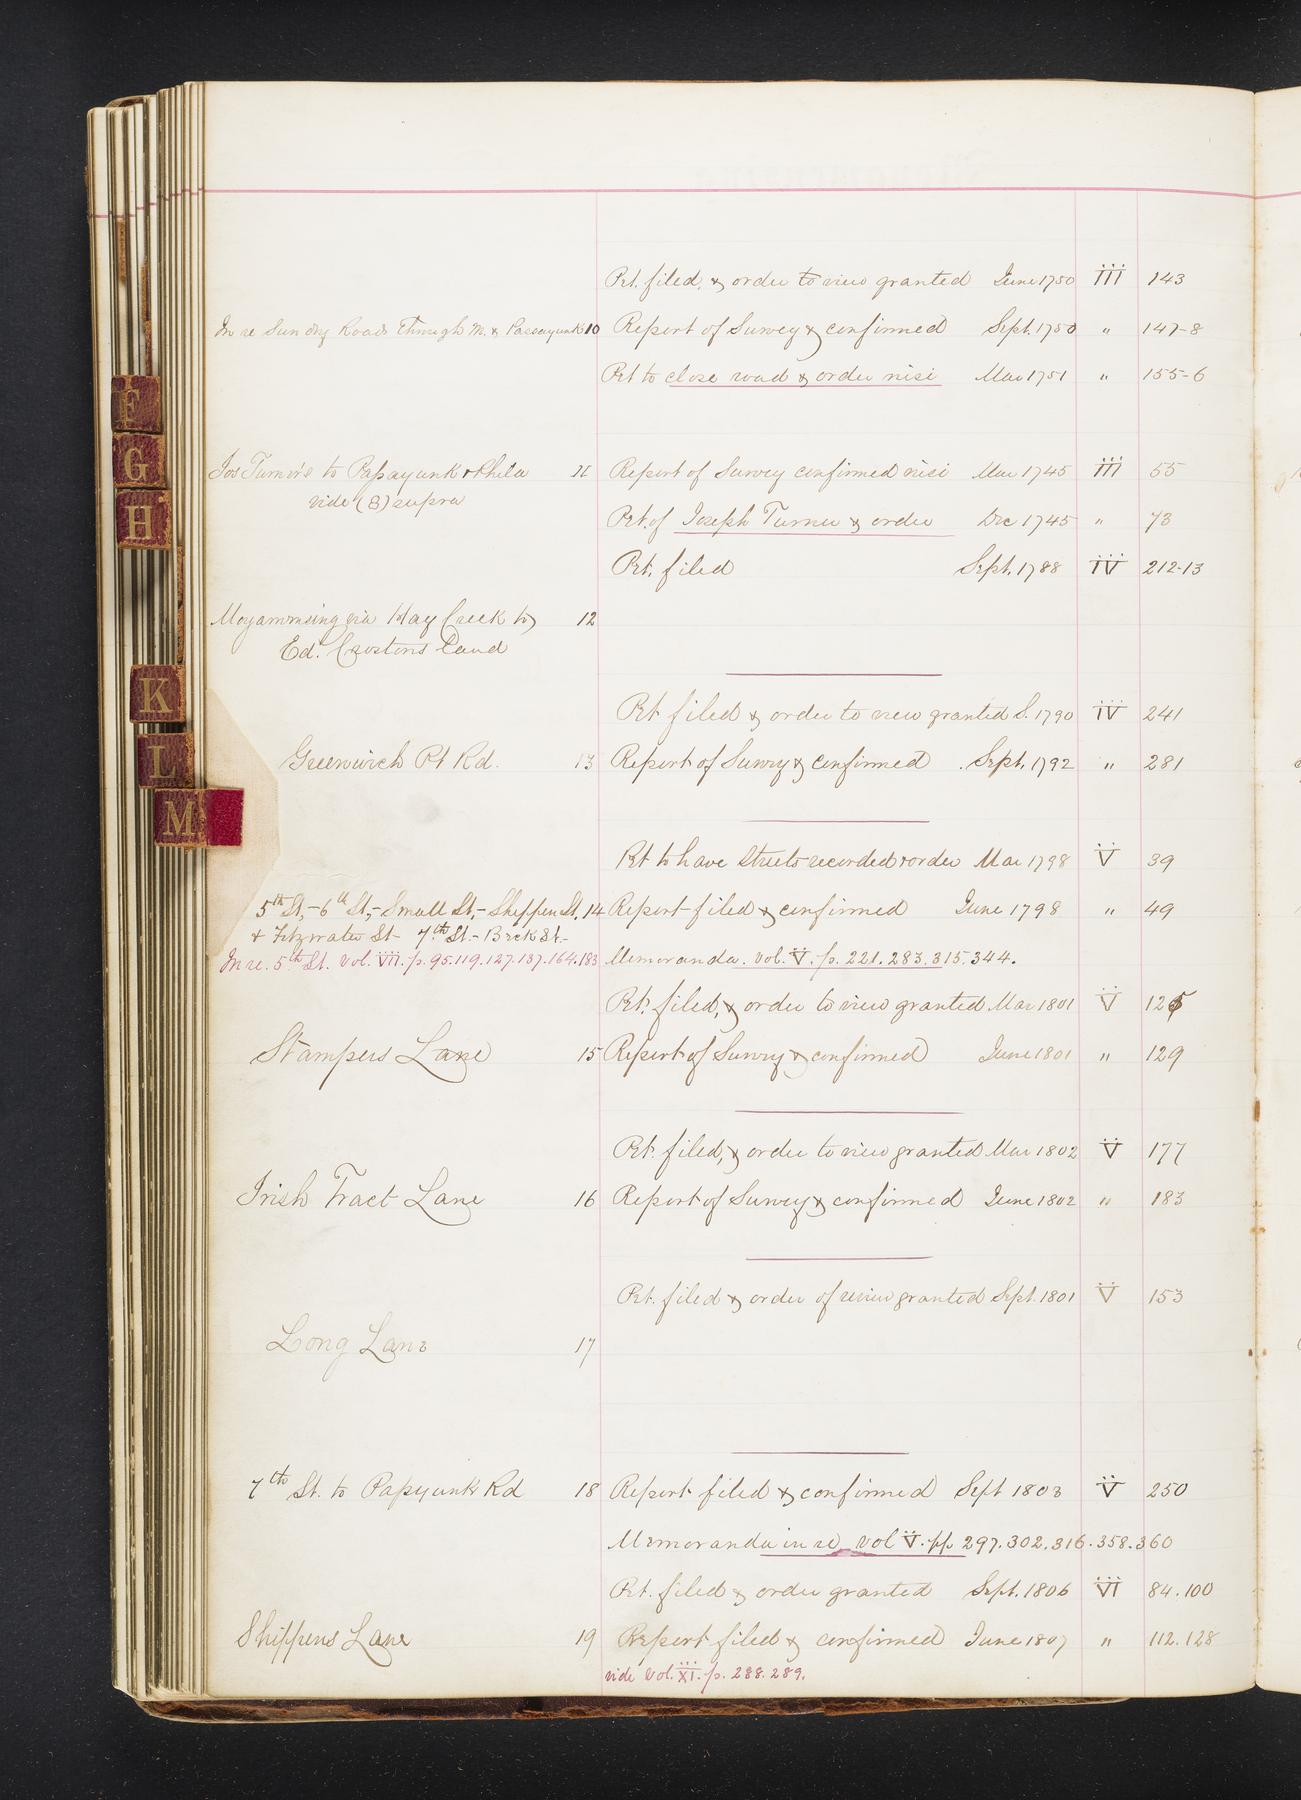 Pet. filed, & order to view granted June 1750 III 143
In re Sundry Roads through M. & Passayunk 10 Report of Survey & confirmed Sept. 1750 " 147-8
Pet to close road & order nisi Mar 1751 " 155-6
F
G
H
Jos Turner's to Passayunk & Phila 11 Report of Survey confirmed nisi Mar 1745 III 55
vide (8) supra
Pet. of Joseph Turner & order Dec 1745 " 73
Pet. filed Sept. 1788 IV 212-13
Moyammsing via Hay Creek to 12
Ed. Croston's Land
K
L
M
Pet filed & order to view granted S. 1790 IV 241
Greenwich Pt Rd. 13 Report of Survey & confirmed . Sept. 1792 " 281
Pet to have Streets recorded & order Mar 1798 V 39
5th St,- 6th St,- Small St,- Shippen St. 14 Report filed & confirmed June 1798 " 49
& Fitzwater St- 7th St.- Brck St.-
In re. 5th St. Vol. VII. p. 95.119.127.137.164.183 Memoranda. vol. V. p. 221. 283. 315. 344.
Pet. filed, & order to view granted Mar 1801 V 125
Stampers Lane 15 Report of Survey & confirmed June 1801 " 129
Pet. filed, & order to view granted Mar 1802 V 177
Irish Tract Lane 16 Report of Survey & confirmed June 1802 " 183
Pet. filed & order of review granted Sept. 1801 V 153
Long Lane 17
7th St. to Papyunk Rd 18 Report filed & confirmed Sept 1803 V 250
Memoranda in re vol V. pp 297.302.316.358.360
Pet. filed & order granted Sept. 1806 VI 84.100
Shippens Lane 19 Report filed & confirmed June 1807 " 112.128
vide Vol. XI. p. 288. 289.